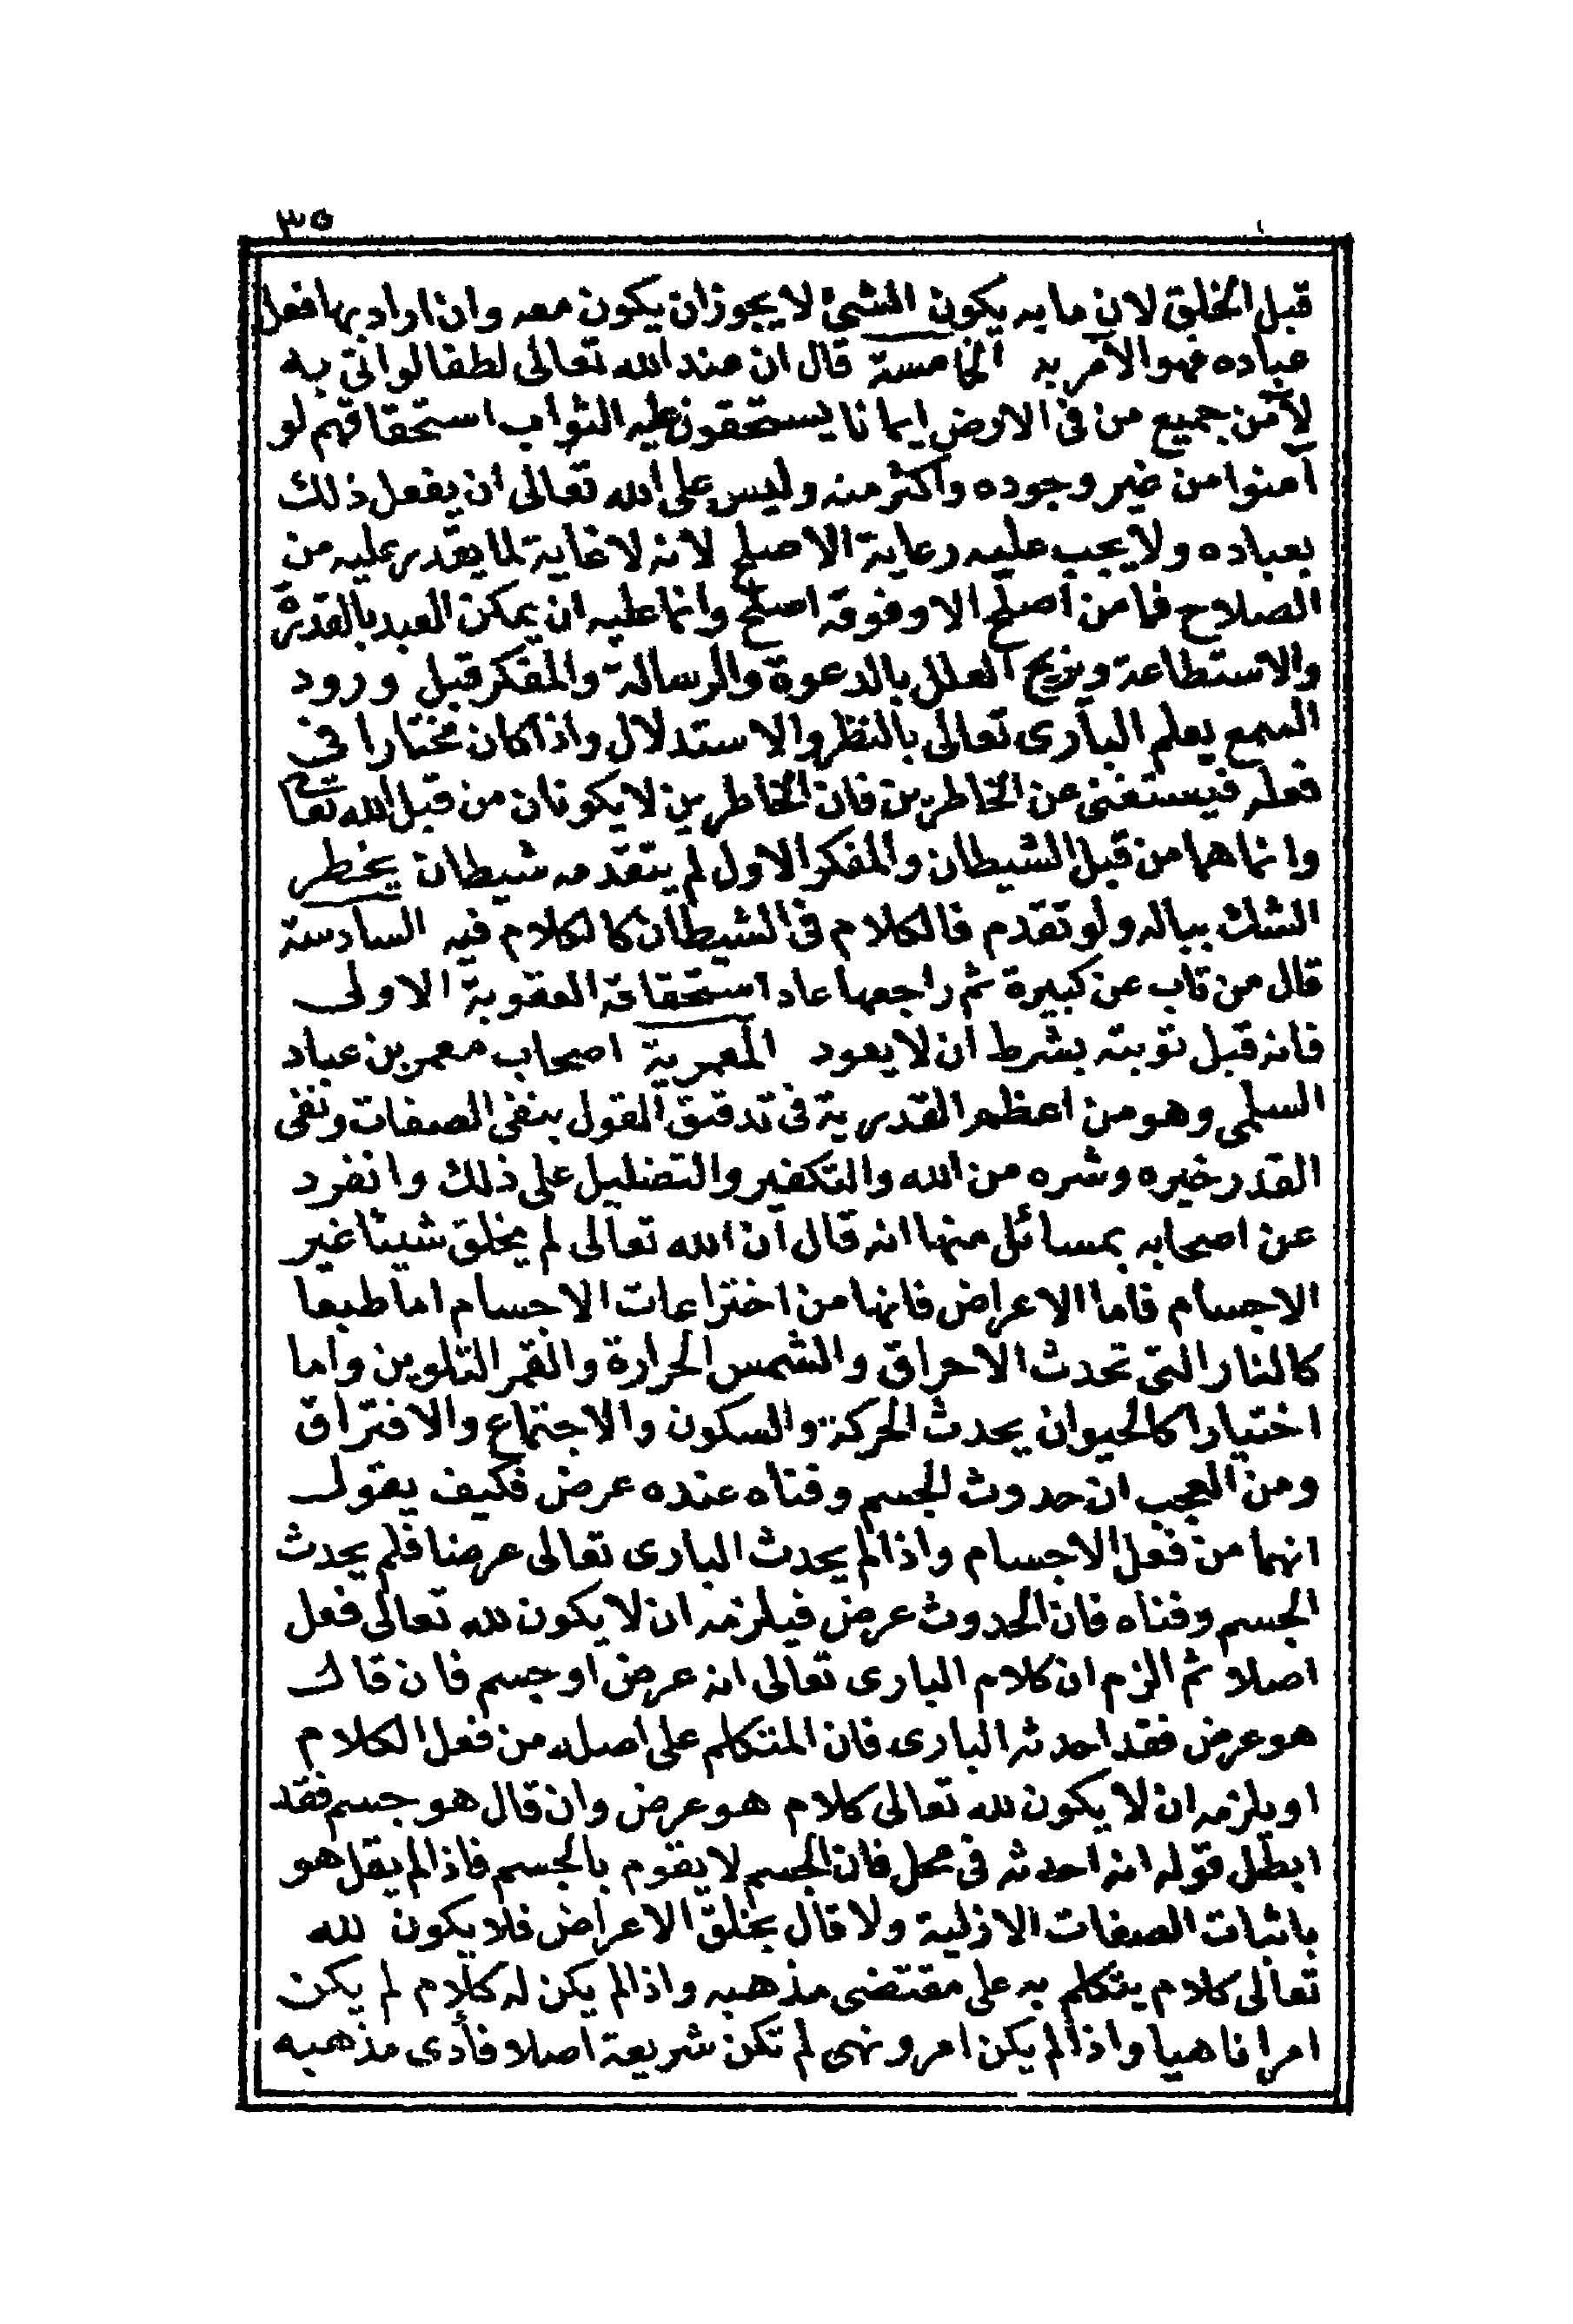 ٣٥
قبل الخلق لان ما به يكون الشىء لا يجوز ان يكون معه وان اراد بها فعل
عباده فهو الآمر به الخامسة قال ان عند الله تعالى لطفا لو اتى به
لآمن جميع من فى الارض ايمانا يستحقون عليه الثواب استحقاقهم لو
آمنوا من غير وجوده واكثر منه وليس على الله تعالى ان يفعل ذلك
بعباده ولا يجب عليه رعاية الاصلح لانه لا غاية لما يقدر عليه من
الصلاح فما من اصلح الا وفوقه اصلح وانما عليه ان يمكن العبد بالقدرة
والاستطاعة ويزيح العلل بالدعوة والرسالة والمفكر قبل ورود
السمع يعلم البارى تعالى بالنظر والاستدلال واذا كان مختارا فى
فعله فيستغنى عن الخاطرين فان الخاطرين لا يكونان من قبل الله تعالى
وانما هما من قبل الشيطان والمفكر الاول لم يتقدمه شيطان يخطر
الشك بباله ولو تقدم فالكلام فى الشيطان كالكلام فيه السادسة
قال من تاب عن كبيرة ثم راجعها عاد استحقاقه العقوبة الاولى
فانه قبل توبته بشرط ان لا يعود المعمرية اصحاب معمر بن عباد
السلمى وهو من اعظم القدرية فى تدقيق القول بنفى الصفات ونفى
القدر خيره وشره من الله والتكفير والتضليل على ذلك وانفرد
عن اصحابه بمسائل منها انه قال ان الله تعالى لم يخلق شيئا غير
الاجسام فاما الاعراض فانها من اختراعات الاجسام اما طبعا
كالنار التى تحدث الاحراق والشمس الحرارة والقمر التلوين واما
اختيارا كالحيوان يحدث الحركة والسكون والاجتماع والافتراق
ومن العجب ان حدوث الجسم وفناه عنده عرض فكيف يقول
انهما من فعل الاجسام واذا لم يحدث البارى تعالى عرضا فلم يحدث
الجسم وفناه فان الحدوث عرض فيلزمه ان لا يكون لله تعالى فعل
اصلا ثم الزم ان كلام البارى تعالى انه عرض او جسم فان قال
هو عرض فقد احدثه البارى فان المتكلم على اصله من فعل الكلام
او يلزمه ان لا يكون لله تعالى كلام هو عرض وان قال هو جسم فقد
ابطل قوله انه احدثه فى محل فان الجسم لا يقوم بالجسم فاذا لم يقل هو
باثبات الصفات الازلية ولا قال بخلق الاعراض فلا يكون لله
تعالى كلام يتكلم به على مقتضى مذهبه واذا لم يكن له كلام لم يكن
امرا ناهيا واذا لم يكن امر ونهى لم تكن شريعة اصلا فأدى مذهبه